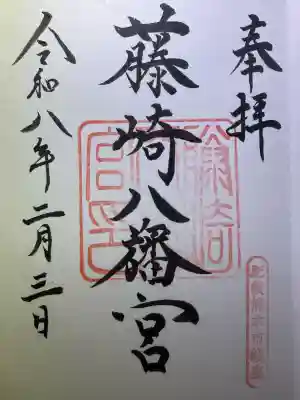 奉拝
藤崎八旛宮
令和八年二月三日